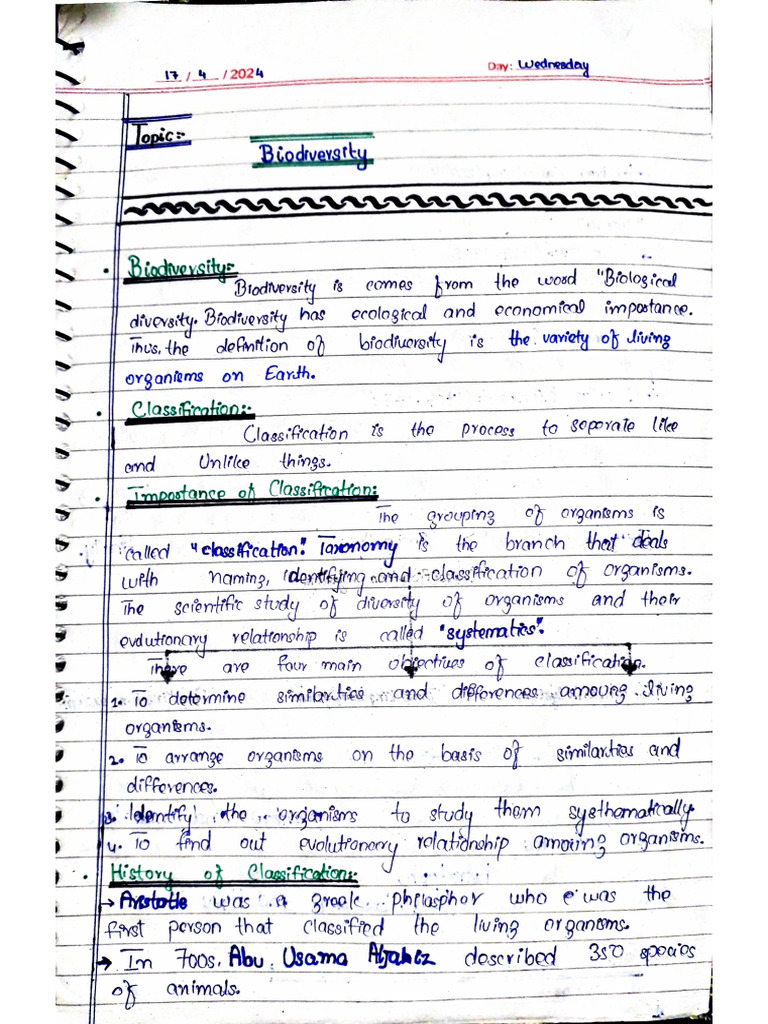 17 / 4 / 2024 Day: Wednesday
Topic:-
Biodiversity
Biodiversity:-
Biodiversity is comes from the word "Biological
diversity. Biodiversity has ecological and economical importance.
Thus, the definition of biodiversity is the variety of living
organisms on Earth.
Classification:-
Classification is the process to seperate like
and Unlike things.
Importance of Classification:
The grouping of organisms is
called "classification". Taxonomy is the branch that deals
with naming, identifying and classification of organisms.
The scientific study of diversity of organisms and their
evolutionary relationship is called "systematics".
There are four main objectives of classification.
1. To determine similarities and differences amoung living
organisms.
2. To arrange organisms on the basis of similarties and
differences.
3. Identify the organisms to study them systhematically.
4. To find out evolutionary relationship amoung organisms.
History of Classification:-
→ Aristotle was a greek who was the
first person that classified the living organisms.
→ In 700s, Abu Usama Aljahiz described 350 species
of animals.